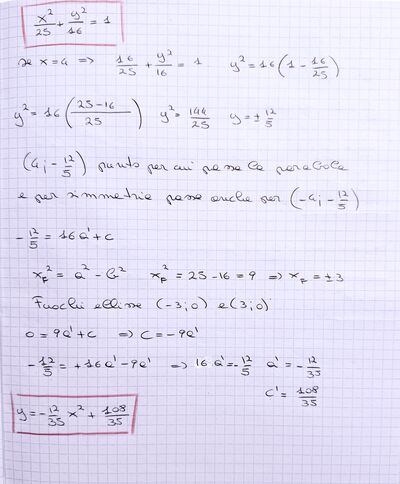 x²/25 + y²/16 = 1
se x=4 => 16/25 + y²/16 = 1 y² = 16(1 - 16/25)
y² = 16((25-16)/25) y² = 144/25 y = ± 12/5
(4; -12/5) punto per cui passa la parabola
e per simmetria passa anche per (-4; -12/5)
-12/5 = 16a' + c
x_F² = a² - b² x_F² = 25 - 16 = 9 => x_F = ±3
Fuochi ellisse (-3; 0) e (3; 0)
0 = 9a' + c => c = -9a'
-12/5 = +16a' - 9a' => 16a' = -12/5 a' = -12/35
c' = 108/35
y = -12/35 x² + 108/35